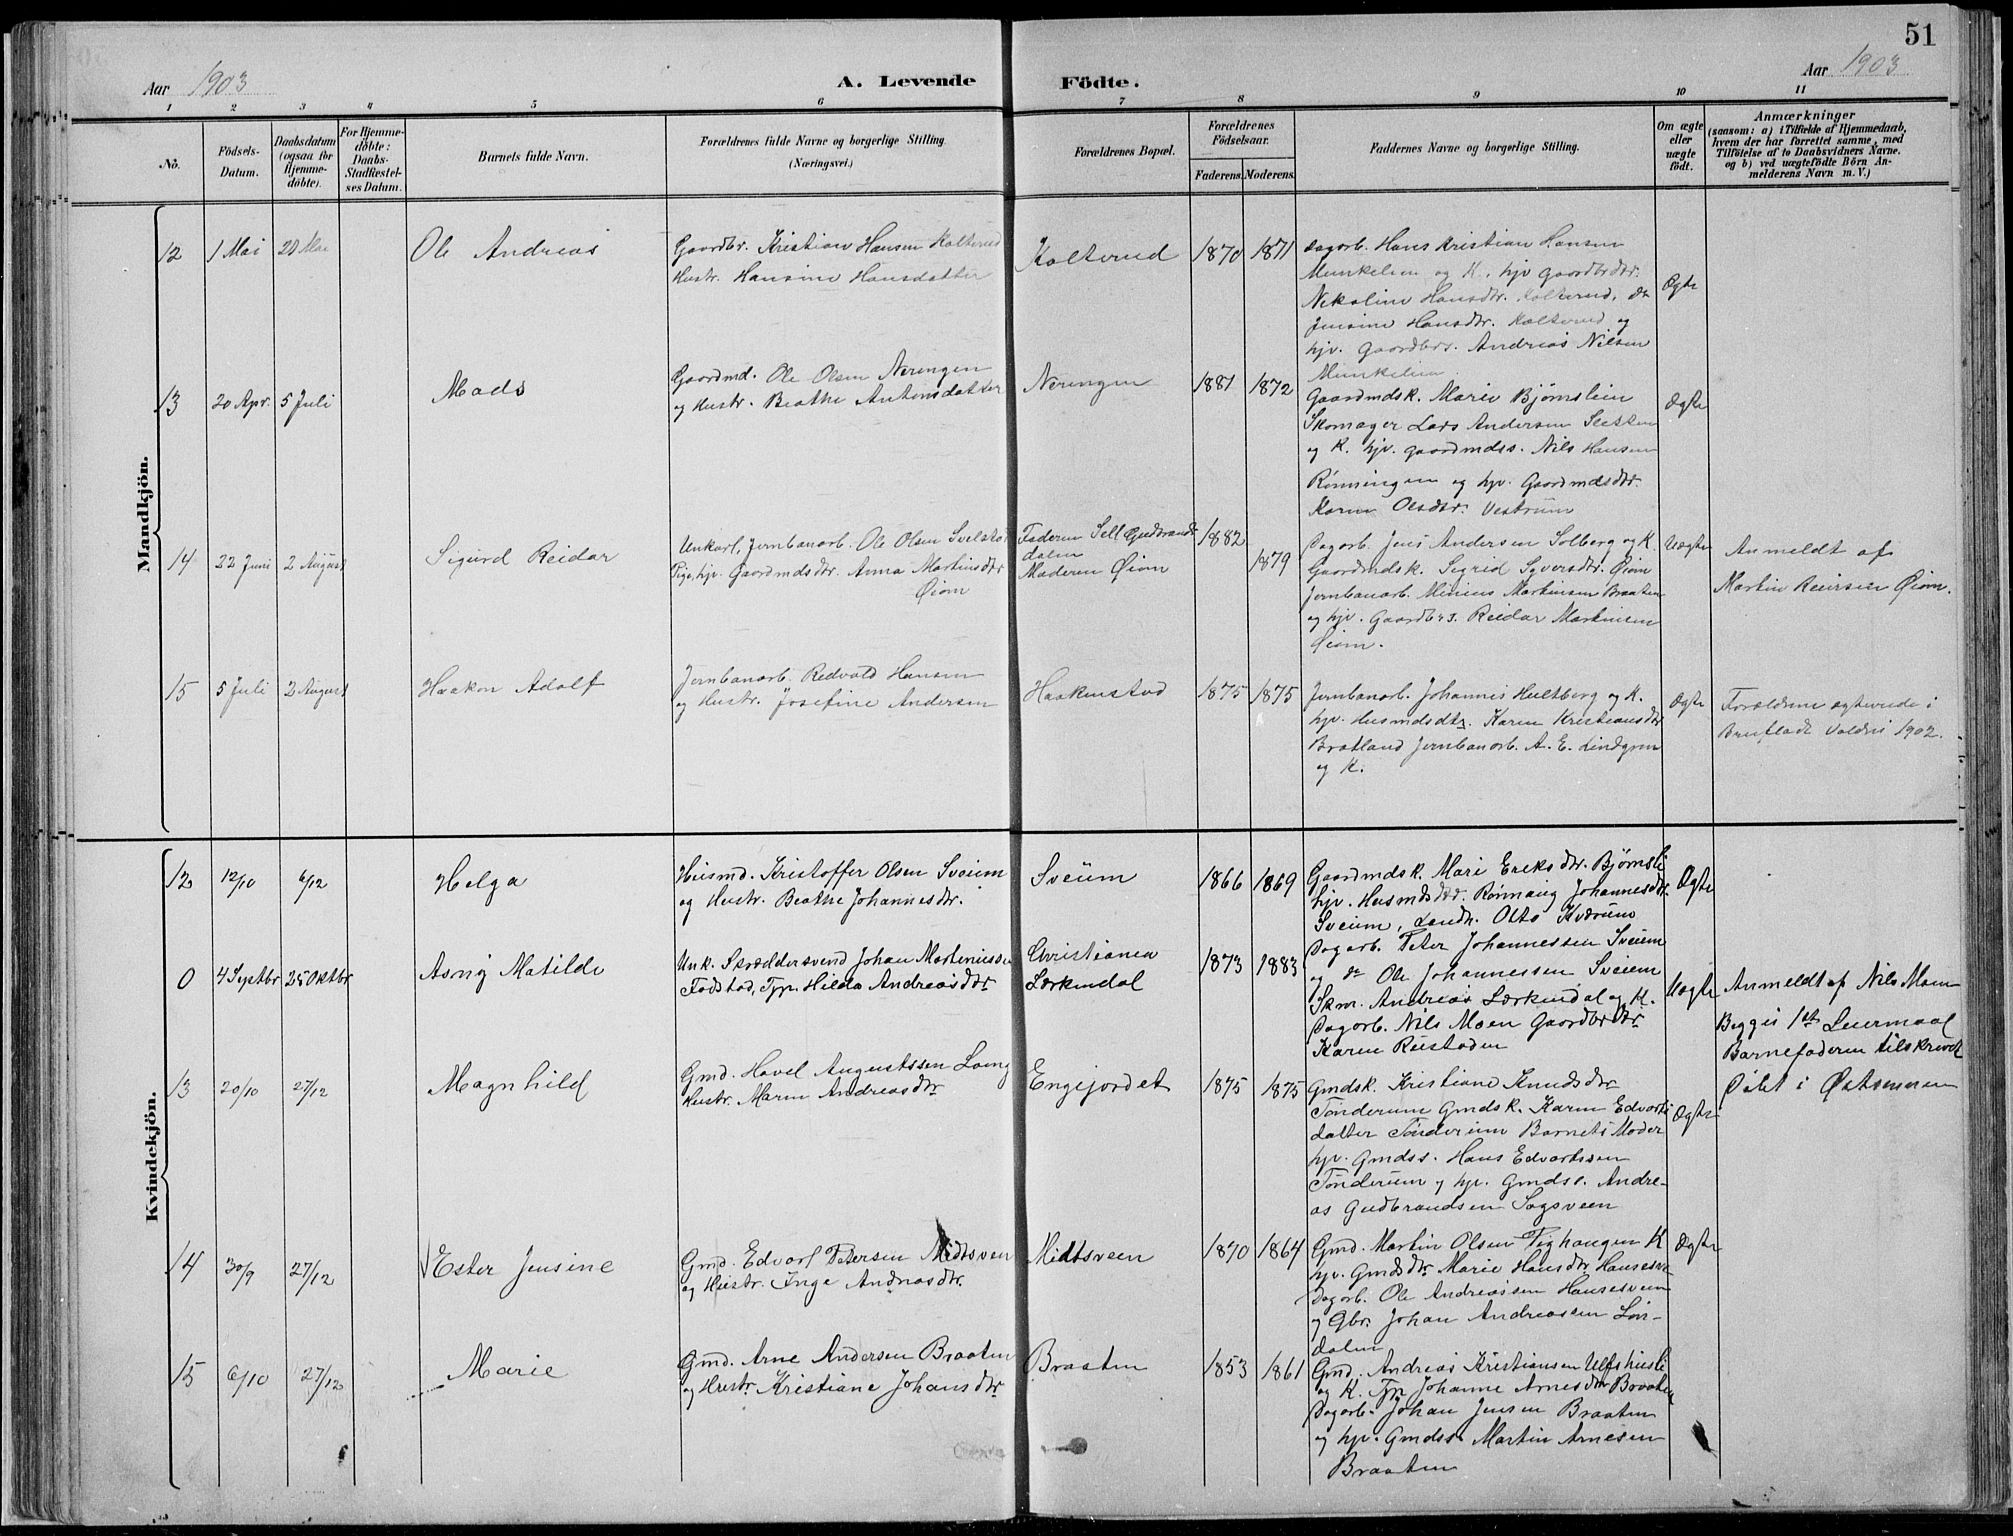 51
Aar 1903
A. Levende Födte.
Aar 1903
1 2 3 4 5 6 7 8 9 10 11
No.
Födsels-
Datum.
Daabsdatum
(ogsaa for
Hjemme-
döbte).
For Hjemme-
döbte:
Daabs-
Stadfæstel-
ses Datum.
Barnets fulde Navn.
Forældrenes fulde Navne og borgerlige Stilling
(Næringsvei.)
Forældrenes Bopæl.
Forældrenes
Födselsaar.
Faderens. Moderens.
Faddernes Navne og borgerlige Stilling.
Om ægte
eller
uægte
födt.
Anmærkninger
(saasom: a) i Tilfælde af Hjemmedaab,
hvem der har forrettet samme, med
Tilföielse af to Daabsvidners Navne.
og b) ved uægtefödte Börn An-
melderens Navn m. V.)
Mandkjön.
12 1 Mai 20 Mai
Ole Andreas
Gaardbr. Kristian Hansen Kolterud
Hustr. Hansine Hansdatter
Kolterud
1870 1871
Dagarb. Hans Kristian Hansen
Munkelien og K. hjv gaardbrdtr.
Nikoline Hansdtr. Kolterud, do
Jensine Hansdtr. Kolterud og
hjv. Gaardbrs. Andreas Nilsen
Munkelien
Ægte
13 20 Apr. 5 Juli
Mads
Gaardmd. Ole Olsen Neringen
og Hustr. Beathe Antonsdatter
Neringen
1881 1872
Gaardmdsk. Marie Bjørnslien
Skomager Lars Andersen Sletten
og K. hjv. gaardmdss. Nils Hansen
Rønningen og hjv. Gaardmdsdtr.
Karen Olsdtr. Vestrum
Ægte
14 22 Juni 2 August
Sigurd Reidar
Unkarl, Jernbanarb. Ole Olsen Svelstad
Pige, hjv. Gaardmdsdtr. Anna Martinsdtr
Øiom
Faderen Sell Gudbrands
dalen
Moderen Øiom
1882
1879
Dagarb. Jens Andersen Solberg og K.
Gaardmdsk. Sigrid Syversdtr. Øiom
Jernbanarb. Minius Martinsen Braaten
og hjv. Gaardbrs. Reidar Martinsen
Øiom.
Uægte
Anmeldt af
Martin Reiersen Øiom.
15 5 Juli 2 August
Haakon Adolf
Jernbanarb. Redvald Hansen
og Hustr. Josefine Andersen
Haakenstad
1875 1875
Jernbanarb. Johannes Hultberg og K.
hjv. Husmdsdtr. Karen Kristiansdtr
Bratland Jernbanarb. A. E. Lindgren
og K.
Ægte
Forældrene ægteviede i
Brufladt Valdres 1902.
Kvindekjön.
12 12/10 6/12
Helga
Husmd. Kristoffer Olsen Sveum
og Hustr. Beathe Johannesdtr.
Sveum
1866 1869
Gaardmdsk. Mari Eriksdtr. Bjørnsli
hjv. Husmdsdtr. Rønnaug Johannesdtr.
Sveum, Landh. Otto Kværum
Dagarb. Peter Johannessen Sveum
og do Ole Johannessen Sveum
Ægte
0 4 Septbr 25 Oktbr
Asny Matilde
Unk. Skræddersvend Johan Martiniussen
Fodstad, Tjp. Hilda Andreasdtr
Christiania
Lærkendal
1873 1883
Skm. Andreas Lærkendal og K.
Dagarb. Nils Moen Gaardbrdtr
Karen Reistaden
Uægte
Anmeldt af Nils Moen
Begges 1st Leiermaal
Barnefaderen tilskrevet
Døbt i Østsinnen
13 20/10 27/12
Magnhild
Gmd. Havel Augustssen Loeng
Hustr. Maren Andreasdtr
Engejordet
1875 1875
Gmdsk. Kristiane Knudsdtr
Tønderum Gmdsk. Karen Edvarts
datter Tønderum Barnets Moder
hjv. Gmdss. Hans Edvartssen
Tønderum og hjv. Gmdss. Andre-
as Gudbrandsen Sogsveen
Ægte
14 30/9 27/12
Ester Jensine
Gmd. Edvart Petersen Midtsveen
og Hustr. Inge Andreasdtr.
Midtsveen
1870 1864
Gmd. Martin Olsen Tighaugen K
hjv. Gmdsdtr Marie Hansdtr Hansesve
Dagarb. Ole Andreassen Hansesveen
og Gbr. Johan Andreassen Løv-
dalen
Ægte
15 6/10 27/12
Marie
Gmd. Arne Andersen Braaten
og Hustr Kristiane Johansdtr
Braaten
1853 1861
Gmd. Andreas Kristiansen Ulfshusli
og K. Tjp Johanne Arnesdtr Braaten
Dagarb. Johan Jensen Braaten
og hjv. Gmdss Martin Arnesen
Braaten